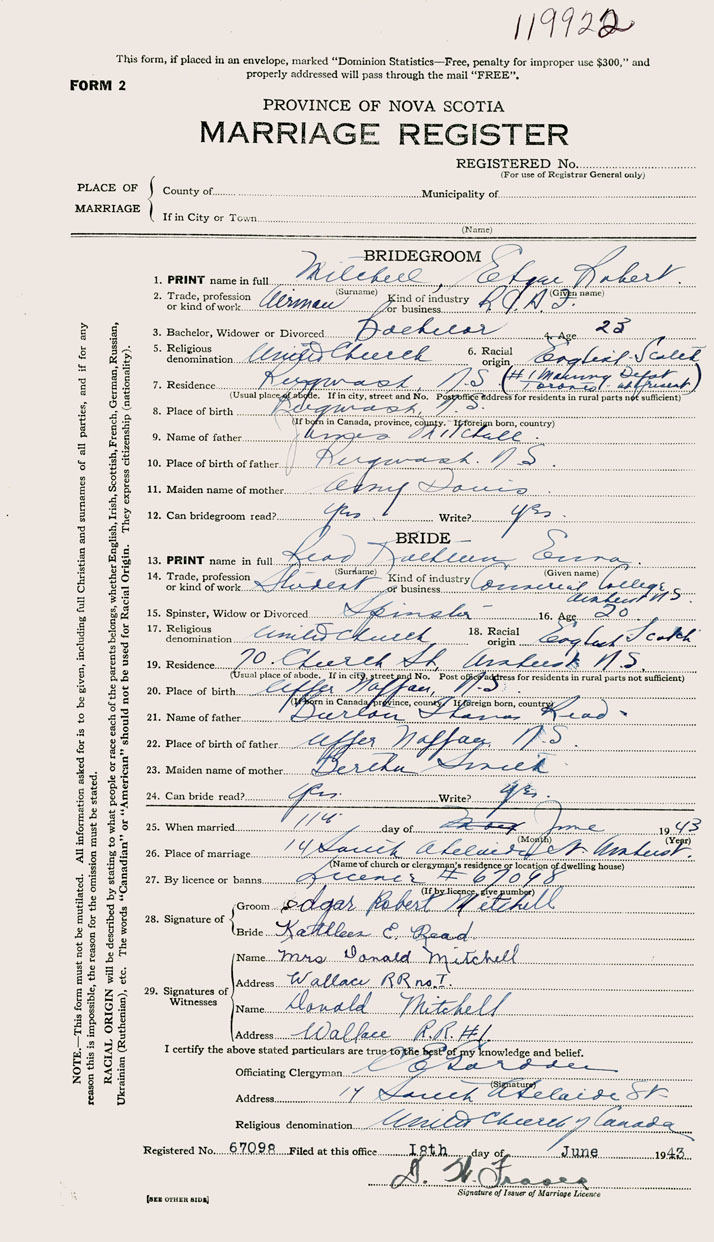 119922
This form, if placed in an envelope, marked "Dominion Statistics—Free, penalty for improper use $300," and
properly addressed will pass through the mail "FREE".
FORM 2
PROVINCE OF NOVA SCOTIA
MARRIAGE REGISTER
REGISTERED No.
(For use of Registrar General only)
PLACE OF MARRIAGE
County of Municipality of
If in City or Town
(Name)
BRIDEGROOM
1. PRINT name in full Mitchell, Edgar Robert.
(Surname) (Given name)
2. Trade, profession or kind of work Airman Kind of industry or business R.C.A.F.
3. Bachelor, Widower or Divorced Bachelor 4. Age 23
5. Religious denomination United Church 6. Racial origin English-Scotch
7. Residence Pugwash, N.S. (#1 Manning Depot Toronto at present)
(Usual place of abode. If in city, street and No. Post office address for residents in rural parts not sufficient)
8. Place of birth Pugwash, N.S.
(If born in Canada, province, county. If foreign born, country)
9. Name of father James Mitchell.
10. Place of birth of father Pugwash. N S.
11. Maiden name of mother Davis
12. Can bridegroom read? yes. Write? yes.
BRIDE
13. PRINT name in full Read Kathleen Emma.
(Surname) (Given name)
14. Trade, profession or kind of work Student Kind of industry or business Commercial College Amherst N.S.
15. Spinster, Widow or Divorced Spinster 16. Age 20
17. Religious denomination United Church 18. Racial origin English Scotch
19. Residence 70. Church St, Amherst N.S.
(Usual place of abode. If in city, street and No. Post office address for residents in rural parts not sufficient)
20. Place of birth Upper Nappan, N.S.
(If born in Canada, province, county. If foreign born, country)
21. Name of father Thomas Read.
22. Place of birth of father Upper Nappan, N.S.
23. Maiden name of mother Bertha Smith
24. Can bride read? yes. Write? yes.
25. When married day of June 1943
(Month) (Year)
26. Place of marriage 14 South Adelaide St Amherst.
(Name of church or clergyman's residence or location of dwelling house)
27. By licence or banns Licence # 67098
(If by licence, give number)
28. Signature of
Groom Edgar Robert Mitchell
Bride Kathleen E. Read
29. Signatures of Witnesses
Name Mrs Donald Mitchell
Address Wallace RR no. 1.
Name Donald Mitchell
Address Wallace R.R.#1.
I certify the above stated particulars are true to the best of my knowledge and belief.
Officiating Clergyman
(Signature)
Address 14 South Adelaide St
Religious denomination United Church of Canada
Registered No. 67098 Filed at this office 18th day of June 1943
D. W. Fraser
Signature of Issuer of Marriage Licence
[SEE OTHER SIDE]
NOTE.—This form must not be mutilated. All information asked for is to be given, including full Christian and surnames of all parties, and if for any
reason this is impossible, the reason for the omission must be stated.
RACIAL ORIGIN will be described by stating to what people or race each of the parents belongs, whether English, Irish, Scottish, French, German, Russian,
Ukrainian (Ruthenian), etc. The words "Canadian" or "American" should not be used for Racial Origin. They express citizenship (nationality).